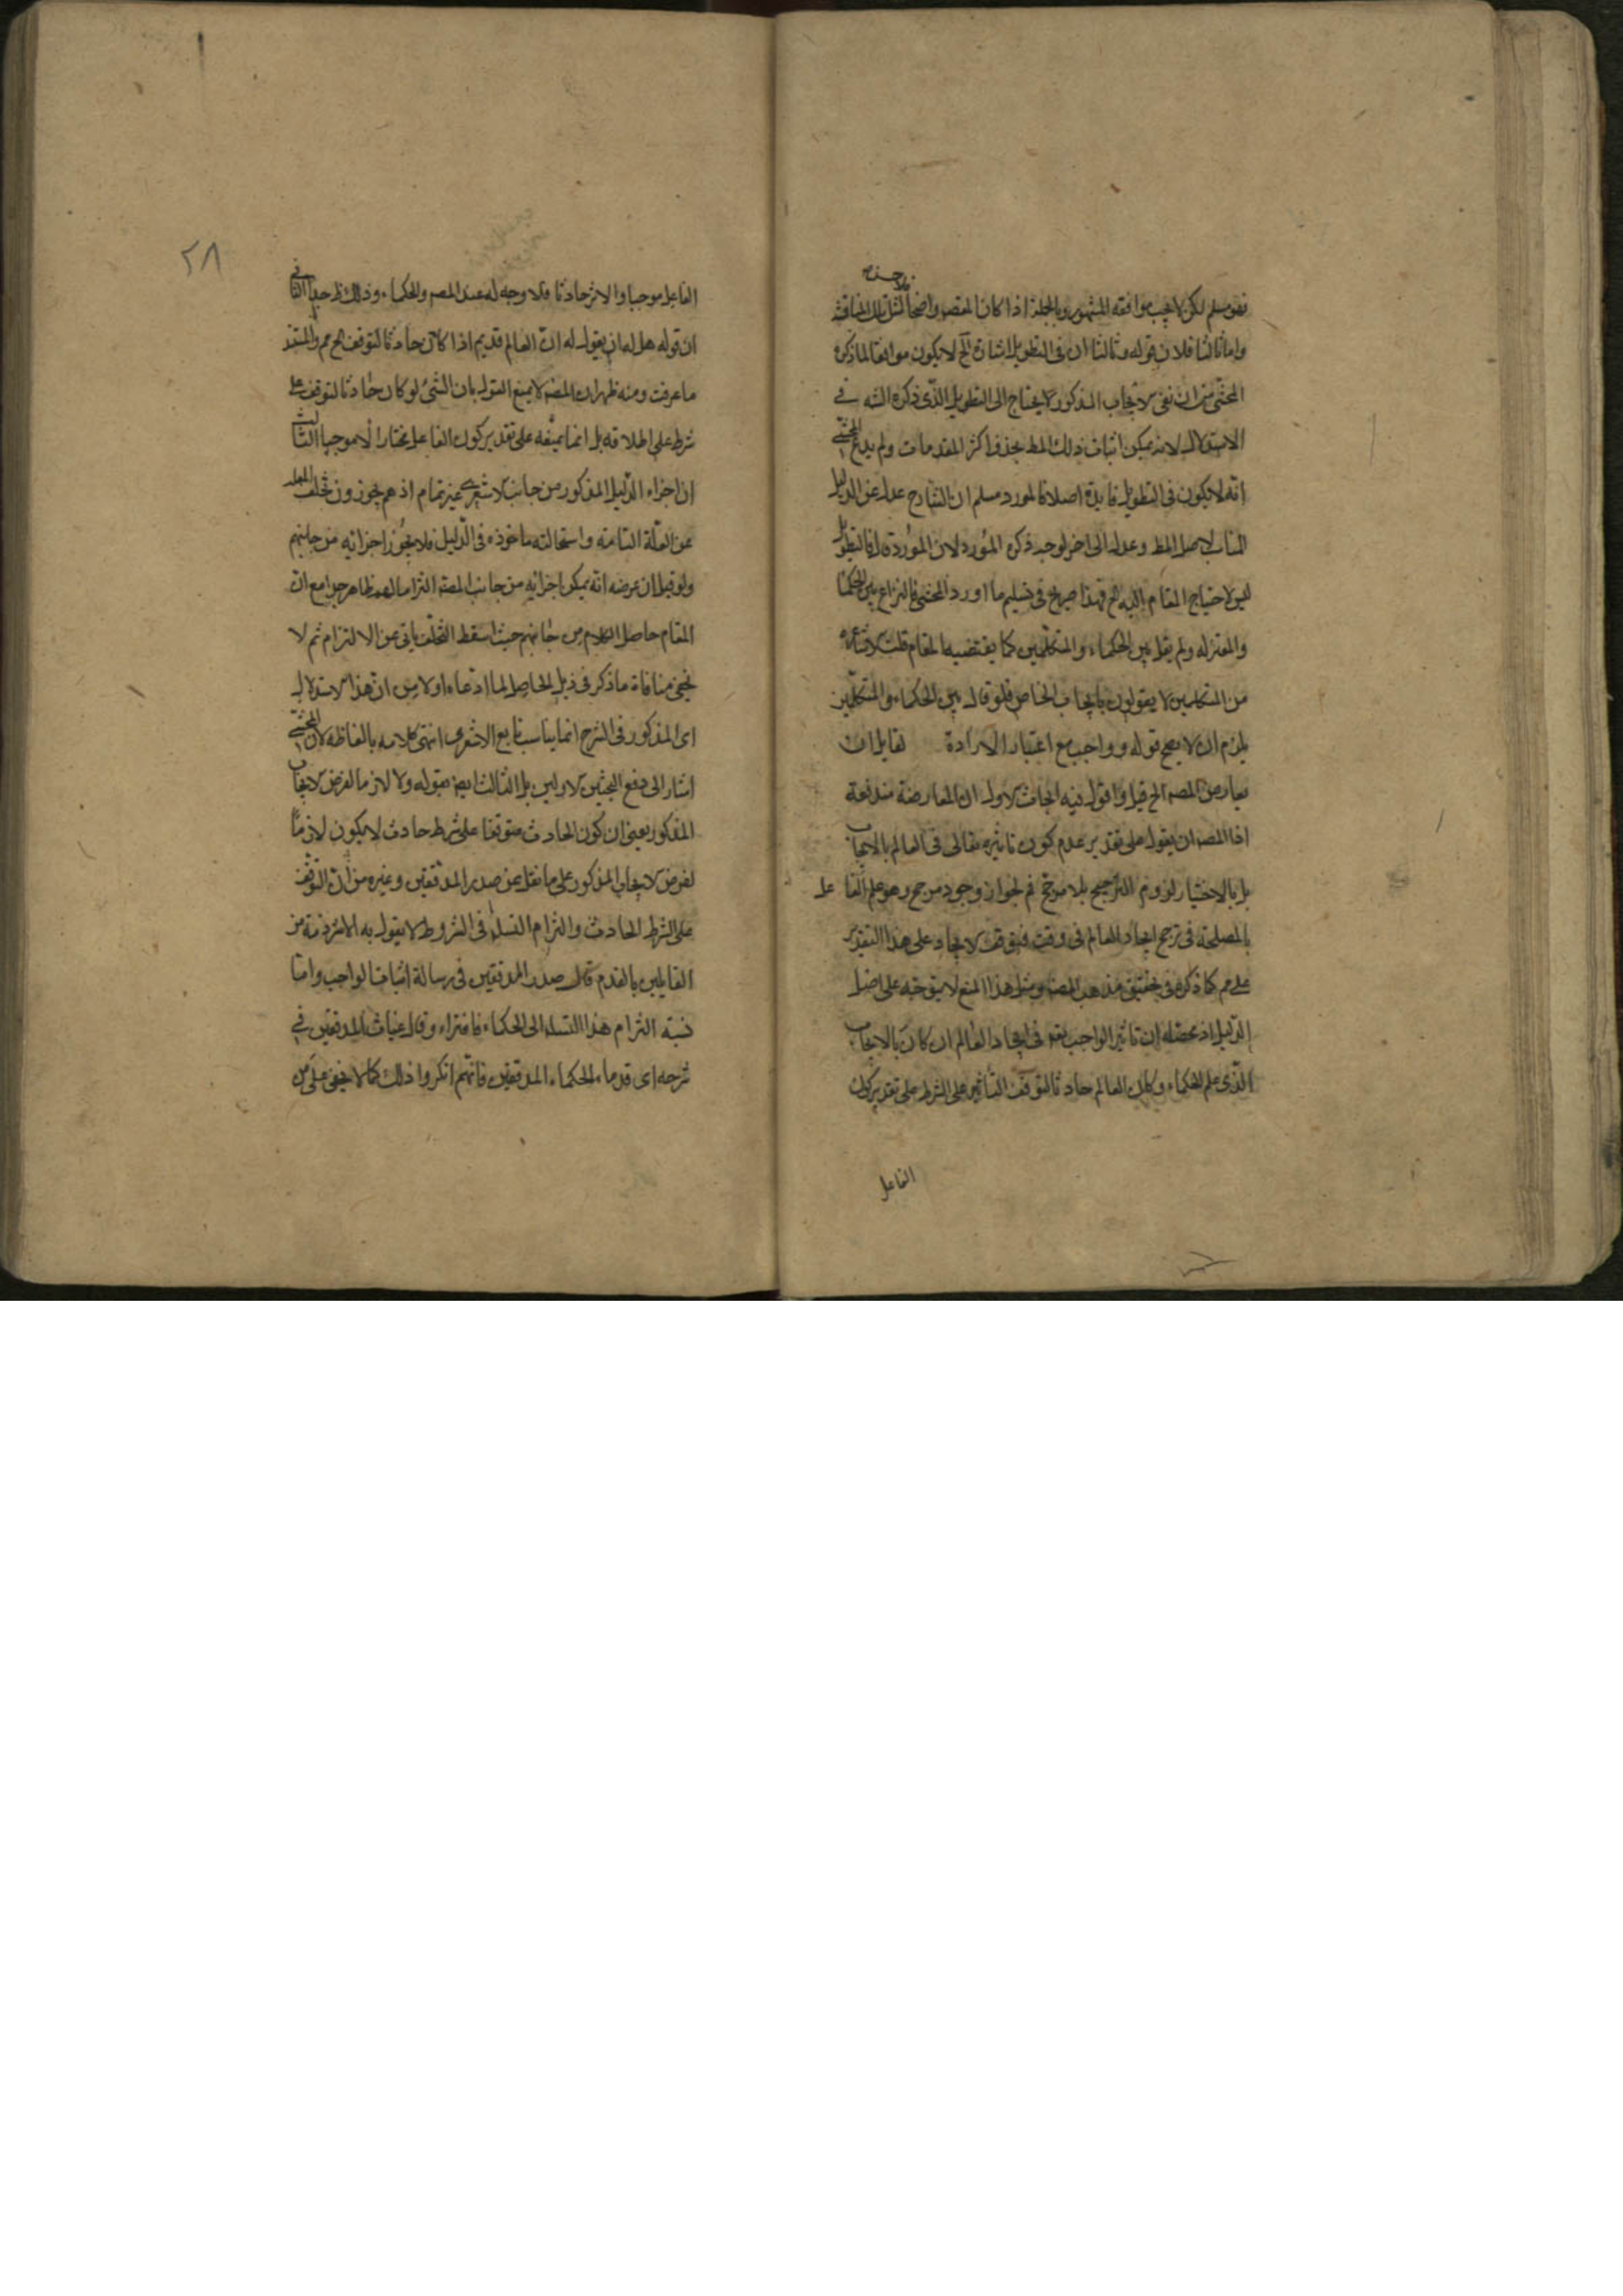 فهو مسلم لكن لا يجب موافقة المشهور وبالجملة اذا كان المقصد واضحا لمثل تلك المناقشة
واما ثالثا فلان قوله وثالثا ان فى التطويل اشارة الخ لا يكون موافقا لما ذكره
المحشى من ان نفى الايجاب المذكور لا يحتاج الى التطويل الذى ذكره الشه فى
الاستدلال لانه يمكن اثبات ذلك المط بحذف اكثر المقدمات ولم يدع المحشى
انه لا يكون فى التطويل فايدة اصلا فالمورد مسلم ان الشارح عدل عن الدليل
المناسب لاصل المط وعدل الى اخر لوجه ذكره المورد لان المورد قال فالتطويل
ليس لاحتياج المقام اليه الخ فهذا صريح فى تسليم ما اورد المحشى فالنزاع بين الحكما
والمعتزله ولم يقل بين الحكماء والمتكلمين كما يقتضيه المقام قلت الاشاعره
من المتكلمين لا يقولون بايجاب الخاص فلو قال بين الحكماء والمتكلمين
يلزم ان لا يصح قوله وواجب مع اعتبار الارادة لقايل ان
يعارض المصه الخ قيل واقول فيه ابحاث الاول ان المعارضة مندفعة
اذا المصه ان يقول على تقدير عدم كون تاثيره تعالى فى العالم بالايجاب
بل بالاختيار لزوم الترجيح بلا مرجح نم لجواز وجود مرجح وهو علم الفاعل
بالمصلحة فى ترجيح ايجاد العالم فى وقت فتوقف الايجاد على هذا التقدير
على مم كما ذكره فى تحقيق مذهب المصه ومثل هذا المنع لا يتوجه على اصل
الدليل اذ محصله ان تاثير الواجب تعه فى ايجاد العالم ان كان بالايجاب
الذى علم الحكماء وكان العالم حادثا لتوقف التأثير على الشرط على تقدير كون
الفاعل
٢٨
الفاعل موجبا والاثر حادثا فلا وجه له عند المصه والحكماء وذلك ظ جدا الثانى
ان قوله هل له ان يقول له ان العالم قديم اذا كان حادثا لتوقف الخ مم والسند
ما عرفت ومنه ظهر ان المصه لا يمنع القول بان الشئ لو كان حادثا لتوقف على
شرط على اطلاقه بل انما يمنعه على تقدير كون الفاعل مختارا لا موجبا الثالث
ان اجزاء الدليل المذكور من جانب الاشعرى غير تمام اذ هم يجوزون تخلف المعلول
عن العلة التامة واستحالته ماخوذه فى الدليل فلا يجوز اجزائيه من جانبهم
ولو قيل ان غرضه انه يمكن اجزائيه من جانب المصه التزاما لهم ظاهر جدا مع ان
المقام حاصل الكلام من جانبهم حيث اسقط التخلف يابى عن الالتزام ثم لا
يخفى منافاة ما ذكر فى ذيل الحاصل لما ادعاه اولا من ان هذا الاستدلال
اى المذكور فى الشرح انما يناسب تابع الاشعرى انتهى كلامه بالفاظه لان المحشى
اشار الى دفع البحثين الاولين بل الثالث ايضه بقوله ولا لازما لفرض الايجاب
المذكور يعنى ان كون الحادث متوقفا على شرط حادث لا يكون لازما
لفرض الايجاب المذكور على ما نقل عن صدر المدققين وغيره من ان التوقف
على الشرط الحادث والتزام التسلسل فى الشروط لا يقول به الا شرذمة من
القايلين بالقدم قال صدر المدققين فى رسالة اثبات الواجب واما
نسبة التزام هذا التسلسل الى الحكماء فافتراء وقال غياث المدققين فى
شرحه اى قدماء الحكماء المدققين فانهم انكروا ذلك كما لا يخفى على من